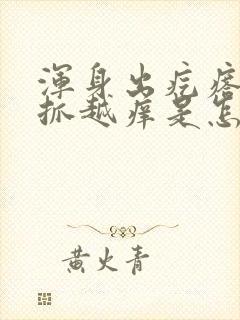 渾身出疙瘩
抓越痒是怎
黄火青